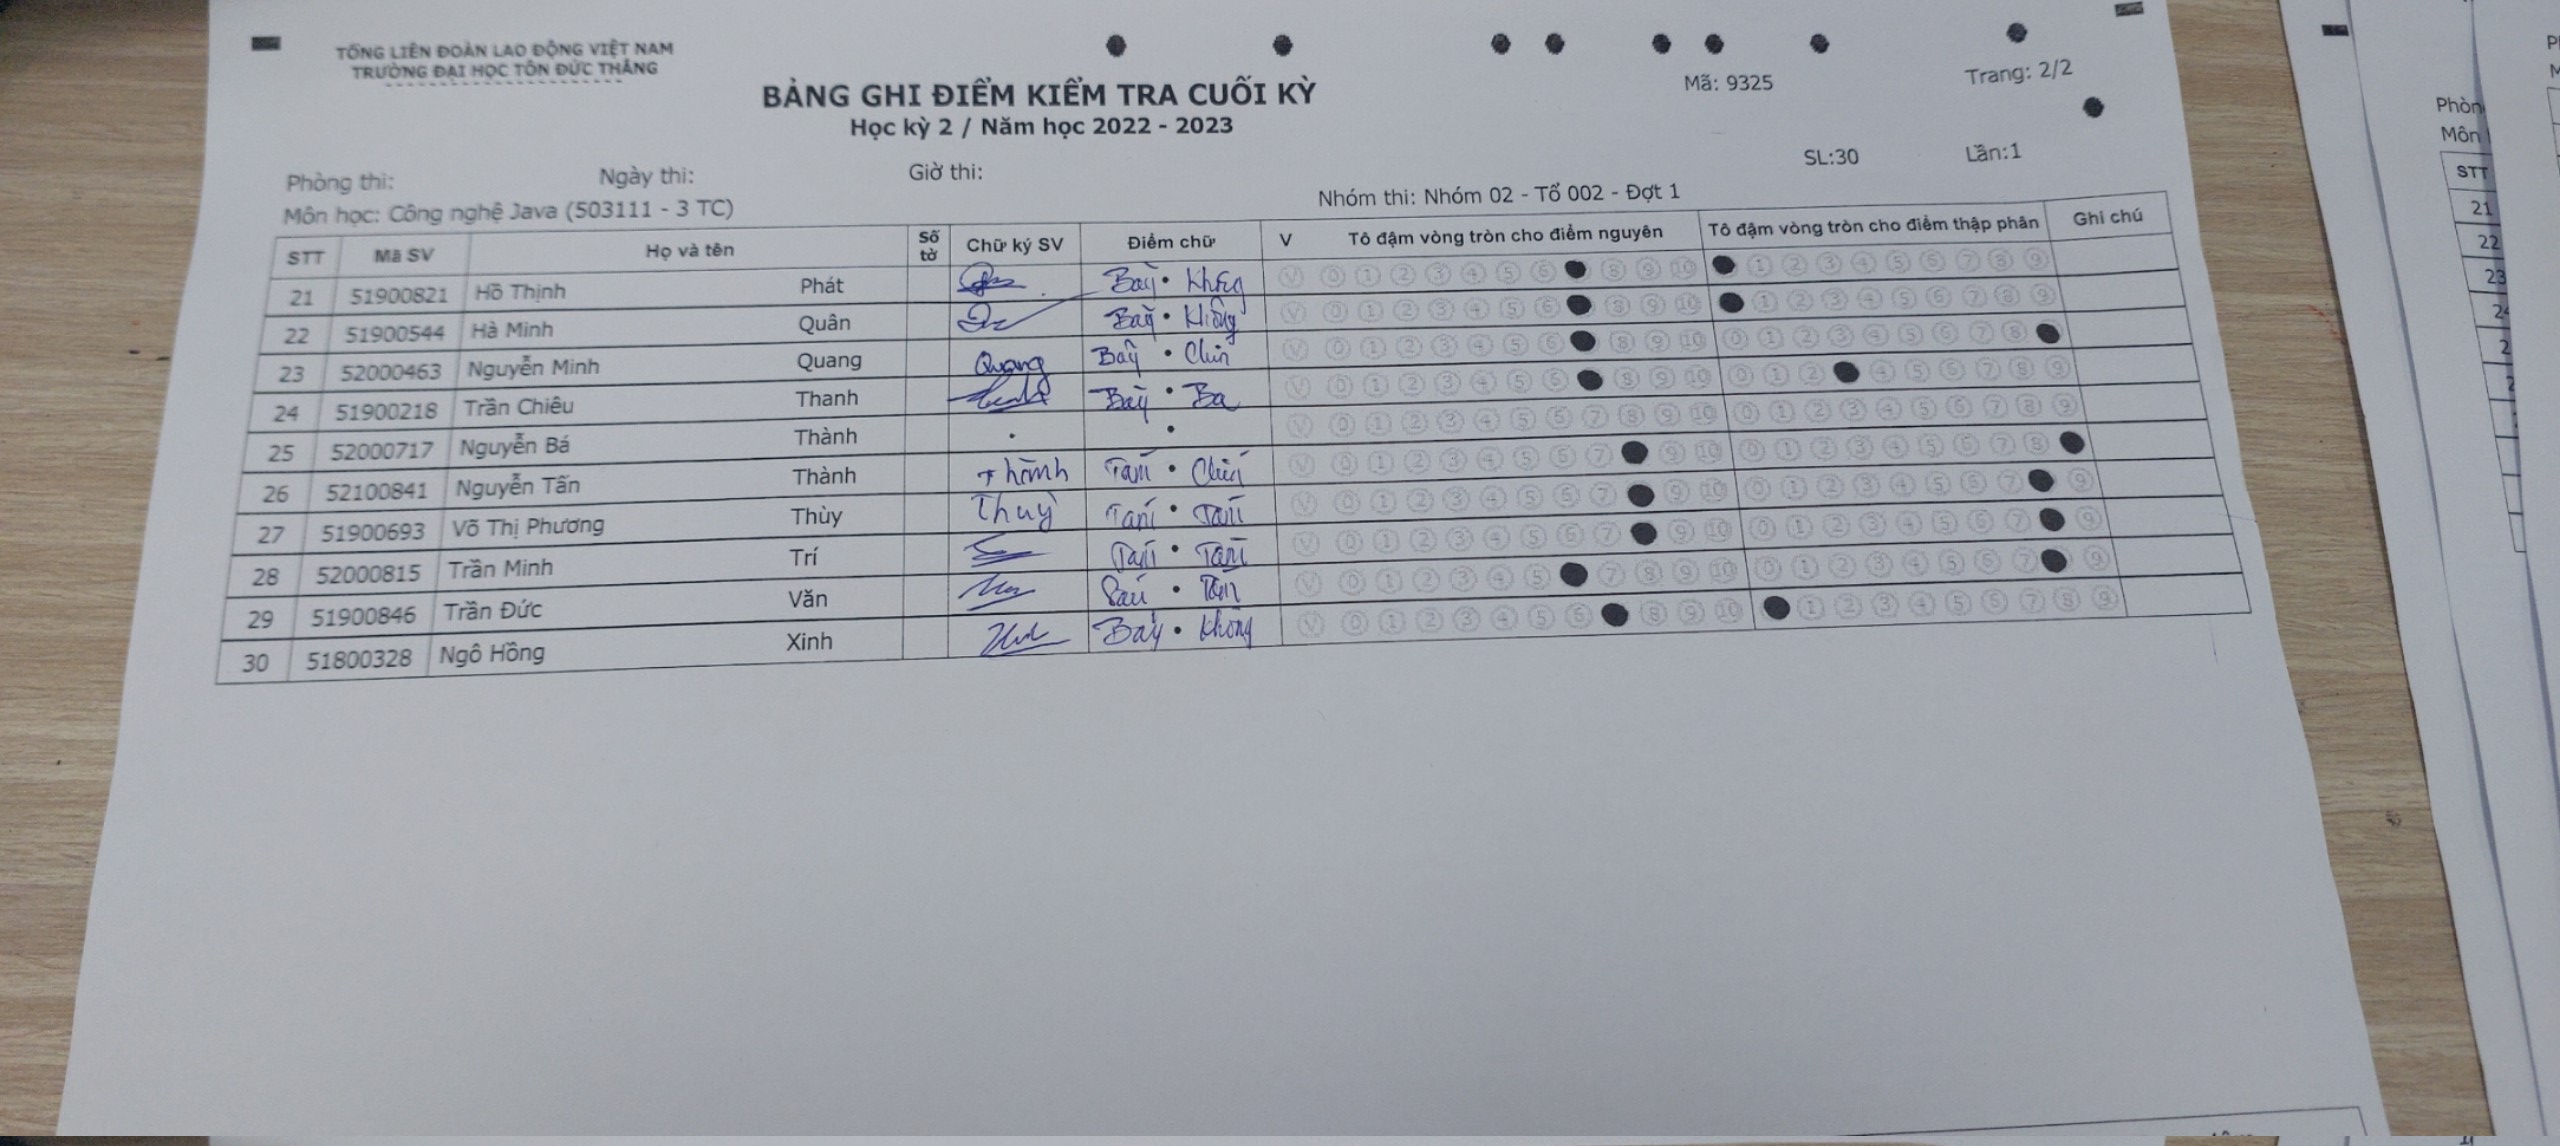 TỔNG LIÊN ĐOÀN LAO ĐỘNG VIỆT NAM
TRƯỜNG ĐẠI HỌC TÔN ĐỨC THẮNG
BẢNG GHI ĐIỂM KIỂM TRA CUỐI KỲ
Học kỳ 2 / Năm học 2022 - 2023
Mã: 9325
Trang: 2/2
SL:30
Lần:1
Phòng thi:
Ngày thi:
Giờ thi:
Môn học: Công nghệ Java (503111 - 3 TC)
Nhóm thi: Nhóm 02 - Tổ 002 - Đợt 1
STT Mã SV Họ và tên Số tờ Chữ ký SV Điểm chữ V Tô đậm vòng tròn cho điểm nguyên Tô đậm vòng tròn cho điểm thập phân Ghi chú
21 51900821 Hồ Thịnh Phát Bảy . Không V 0 1 2 3 4 5 6 8 9 10 1 2 3 4 5 6 7 8 9
22 51900544 Hà Minh Quân Bảy . Không V 0 1 2 3 4 5 6 8 9 10 1 2 3 4 5 6 7 8 9
23 52000463 Nguyễn Minh Quang Quang Bảy . Chín V 0 1 2 3 4 5 6 8 9 10 0 1 2 3 4 5 6 7 8
24 51900218 Trần Chiêu Thanh Bảy . Ba V 0 1 2 3 4 5 6 8 9 10 0 1 2 4 5 6 7 8 9
25 52000717 Nguyễn Bá Thành . . V 0 1 2 3 4 5 6 7 8 9 10 0 1 2 3 4 5 6 7 8 9
26 52100841 Nguyễn Tấn Thành Thành Tám . Chín V 0 1 2 3 4 5 6 7 9 10 0 1 2 3 4 5 6 7 8
27 51900693 Võ Thị Phương Thùy Thuỳ Tám . Tám V 0 1 2 3 4 5 6 7 9 10 0 1 2 3 4 5 6 7 9
28 52000815 Trần Minh Trí Tám . Tám V 0 1 2 3 4 5 6 7 9 10 0 1 2 3 4 5 6 7 9
29 51900846 Trần Đức Văn Sáu . Tám V 0 1 2 3 4 5 7 8 9 10 0 1 2 3 4 5 6 7 9
30 51800328 Ngô Hồng Xinh Bảy . Không V 0 1 2 3 4 5 6 8 9 10 1 2 3 4 5 6 7 8 9
Phòn
Môn
STT
21
22
23